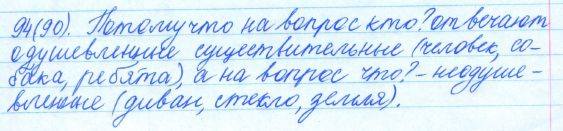 94(90). Потому что на вопрос кто? отвечают
одушевленные существительные (человек, со-
бака, ребята), а на вопрос что? - неодуше-
вленные (диван, стекло, земля).